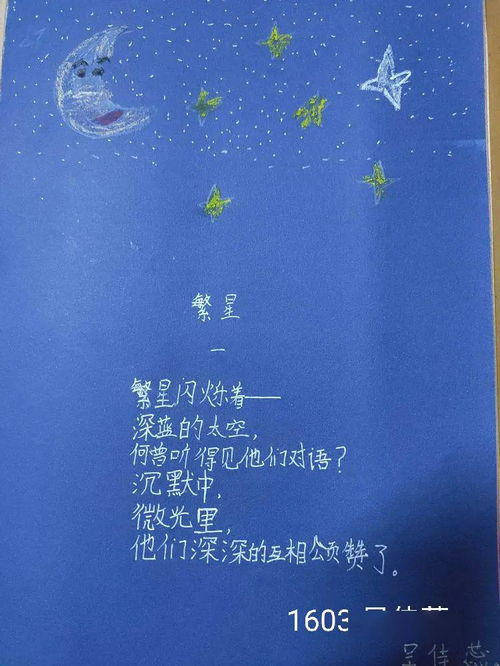 繁星
一
繁星闪烁着——
深蓝的太空，
何曾听得见他们对语？
沉默中，
微光里，
他们深深的互相颂赞了。
1603
佳蕊